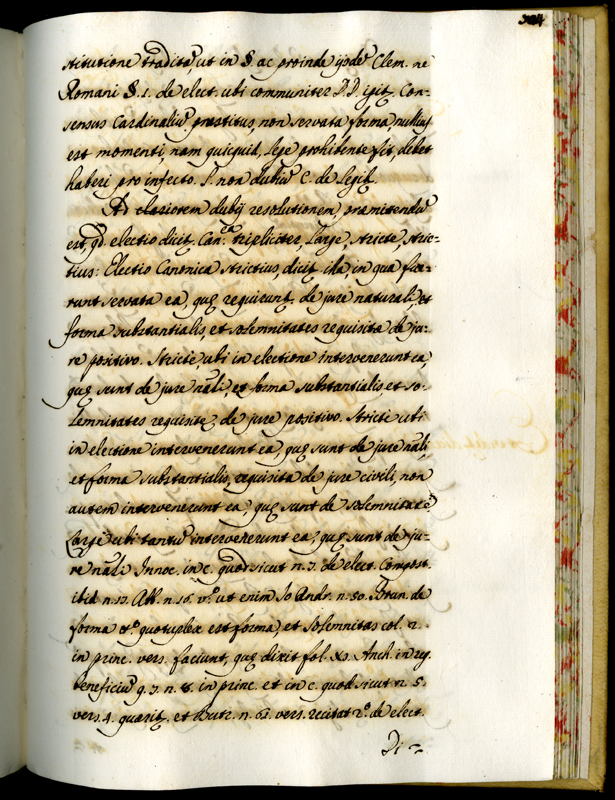 stitutione tradita, ut in §. ac proinde ijsdẽ Clem. ne
Romani §. 1. de elect. ubi communiter DD. igit. Con-
sensus Cardinaliũ prestitus, non servata forma, nullius
est momenti, nam quicquid, lege prohibente fit, debet
haberi pro infecto. l. non dubiũ C. de legib.
Ad clariorem dubij resolutionem, præmitendũ
est, qd electio dicit. Can.ca tripliciter, Large, stricte, stric-
tius: Electio Canonica strictius, dicit. illa, in qua fue-
runt servata ea, quę requirunt. de jure naturali, et
forma substantialis, et solemnitates requisita de ju-
re positivo. Stricte, ubi in electione intervenerunt ea,
quę sunt de jure nãli, et forma substantialis, et so-
lemnitates requisitę de jure positivo. Stricte ubi
in electione intervenerunt ea, quę sunt de jure nãli,
et forma substantialis, requisita de jure civili, non
autem intervenerunt ea, quę sunt de solemnitate
Large ubi tantũ intervenerunt ea, quę sunt de ju-
re nãli Innoc. in c. quod sicut n. 3. de elect. Compost.
ibid n. 13. Abb. n. 16. vº. ut enim Jo Andr. n. 50. Butun. de
forma quotuplex est forma, et solemnitas col. 2.
in princ. vers. faciunt, quę dixit fol. Anch. in reg.
beneficiũ q. 3. n. 8. in princ. et in c. quod sicut n. 5.
vers. 4. quærit, et Butr. n. 62. vers. recitat 2º. de elect.
Di-